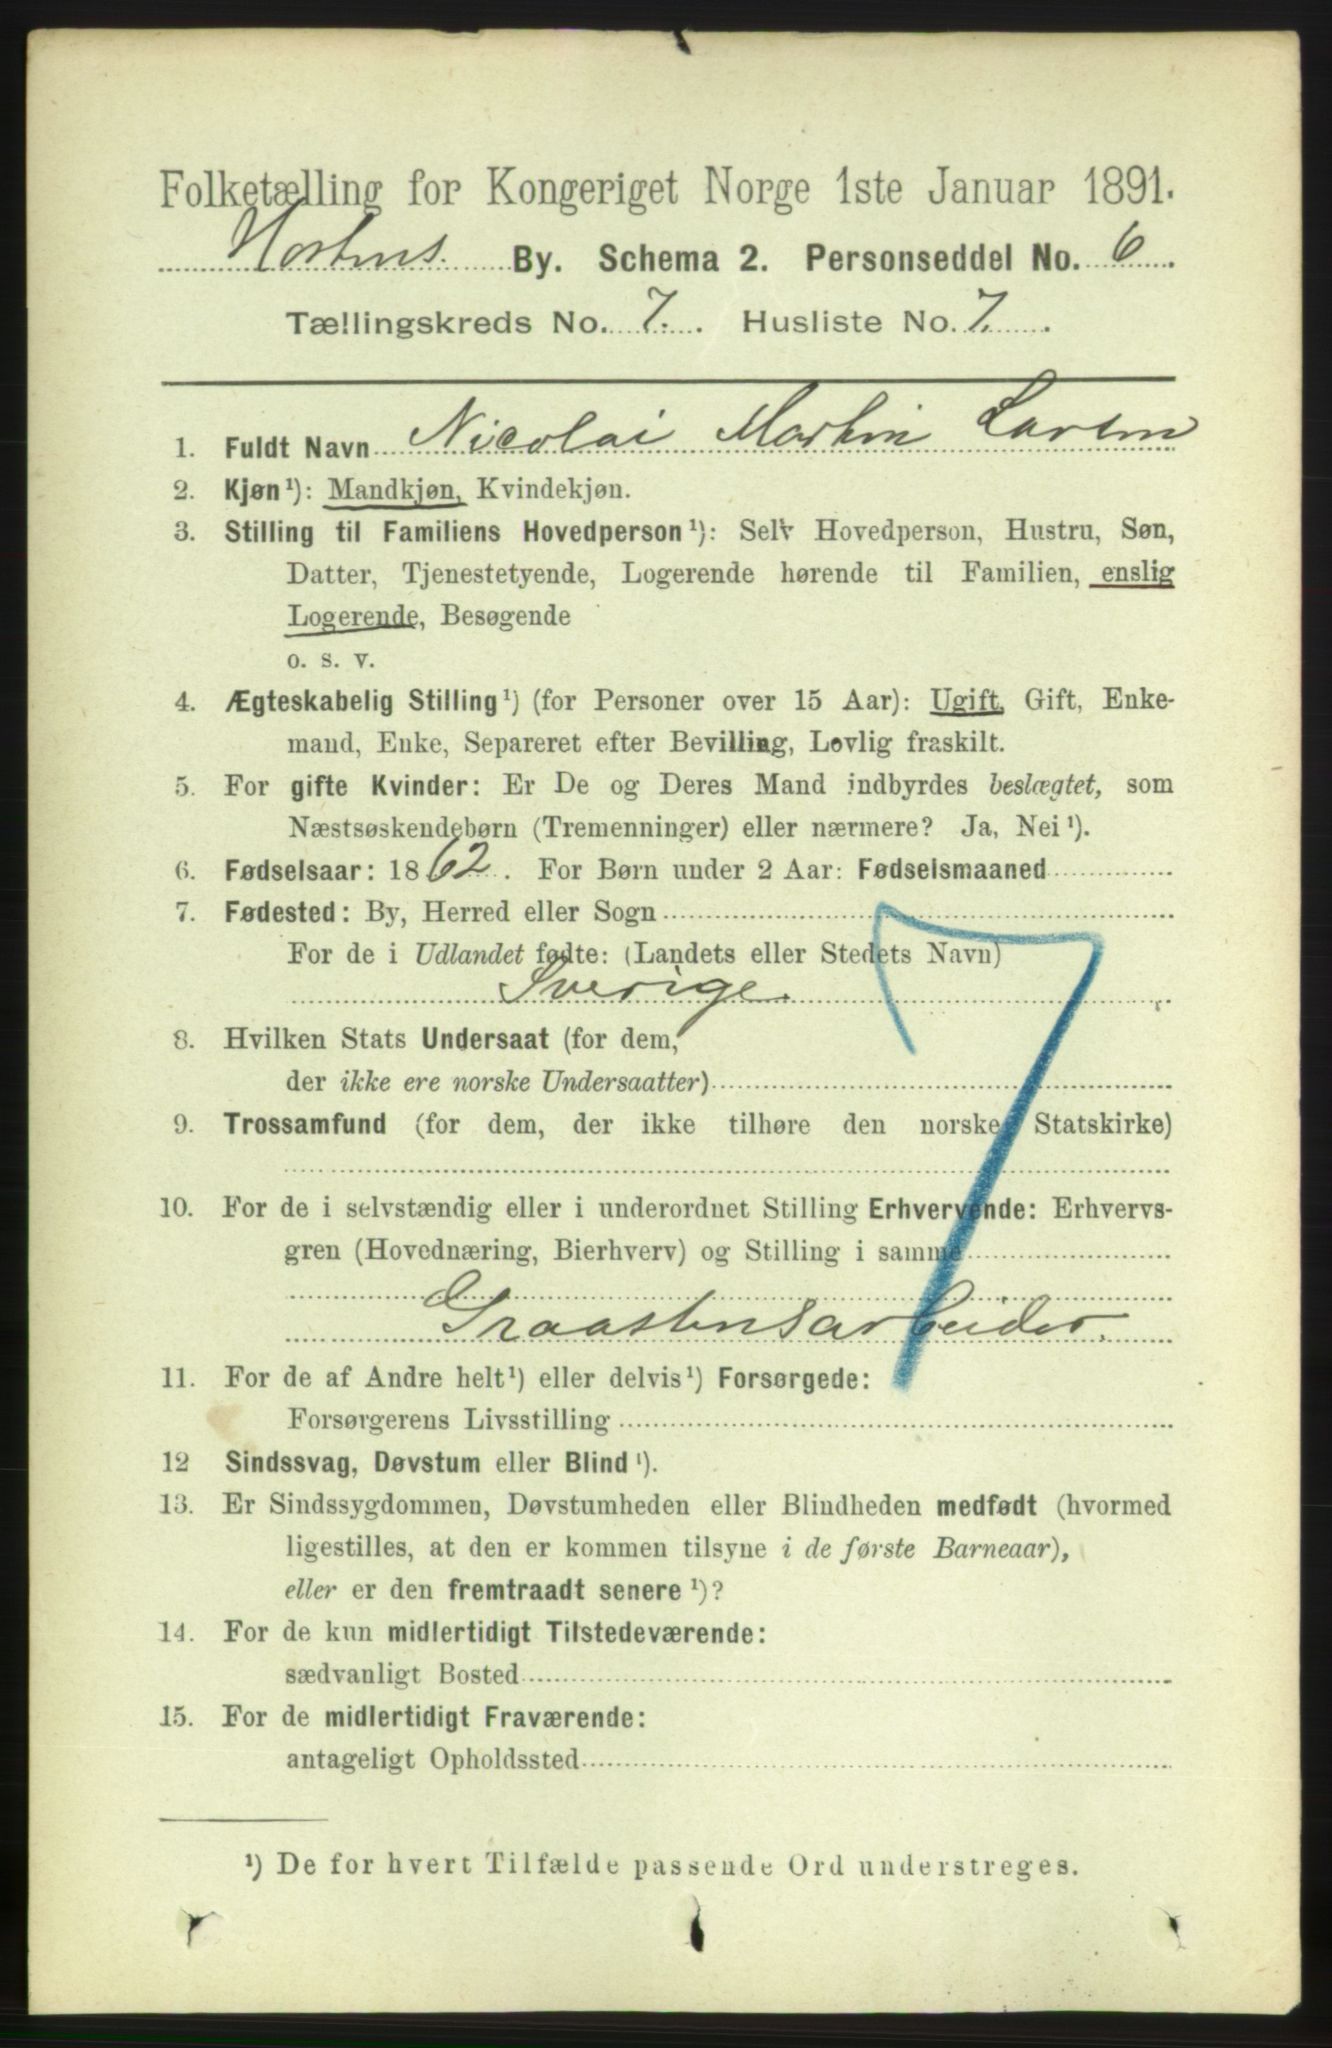 Folketælling for Kongeriget Norge 1ste Januar 1891.
Hortens By. Schema 2. Personseddel No. 6
Tællingskreds No. 7. Husliste No. 7.
1. Fuldt Navn Nicolai Martin Larsen
2. Kjøn¹): Mandkjøn, Kvindekjøn.
3. Stilling til Familiens Hovedperson¹): Selv Hovedperson, Hustru, Søn,
Datter, Tjenestetyende, Logerende hørende til Familien, enslig
Logerende, Besøgende
o. s. v.
4. Ægteskabelig Stilling¹) (for Personer over 15 Aar): Ugift, Gift, Enke-
mand, Enke, Separeret efter Bevilling, Lovlig fraskilt.
5. For gifte Kvinder: Er De og Deres Mand indbyrdes beslægtet, som
Næstsøskendebørn (Tremenninger) eller nærmere? Ja, Nei¹).
6. Fødselsaar: 1862. For Børn under 2 Aar: Fødselsmaaned
7. Fødested: By, Herred eller Sogn
For de i Udlandet fødte: (Landets eller Stedets Navn)
Sverige.
7
8. Hvilken Stats Undersaat (for dem,
der ikke ere norske Undersaatter)
9. Trossamfund (for dem, der ikke tilhøre den norske Statskirke)
10. For de i selvstændig eller i underordnet Stilling Erhvervende: Erhvervs-
gren (Hovednæring, Bierhverv) og Stilling i samme
Graastensarbeider.
11. For de af Andre helt¹) eller delvis¹) Forsørgede:
Forsørgerens Livsstilling
12 Sindssvag, Døvstum eller Blind¹).
13. Er Sindssygdommen, Døvstumheden eller Blindheden medfødt (hvormed
ligestilles, at den er kommen tilsyne i de første Barneaar),
eller er den fremtraadt senere¹)?
14. For de kun midlertidigt Tilstedeværende:
sædvanligt Bosted
15. For de midlertidigt Fraværende:
antageligt Opholdssted
¹) De for hvert Tilfælde passende Ord understreges.